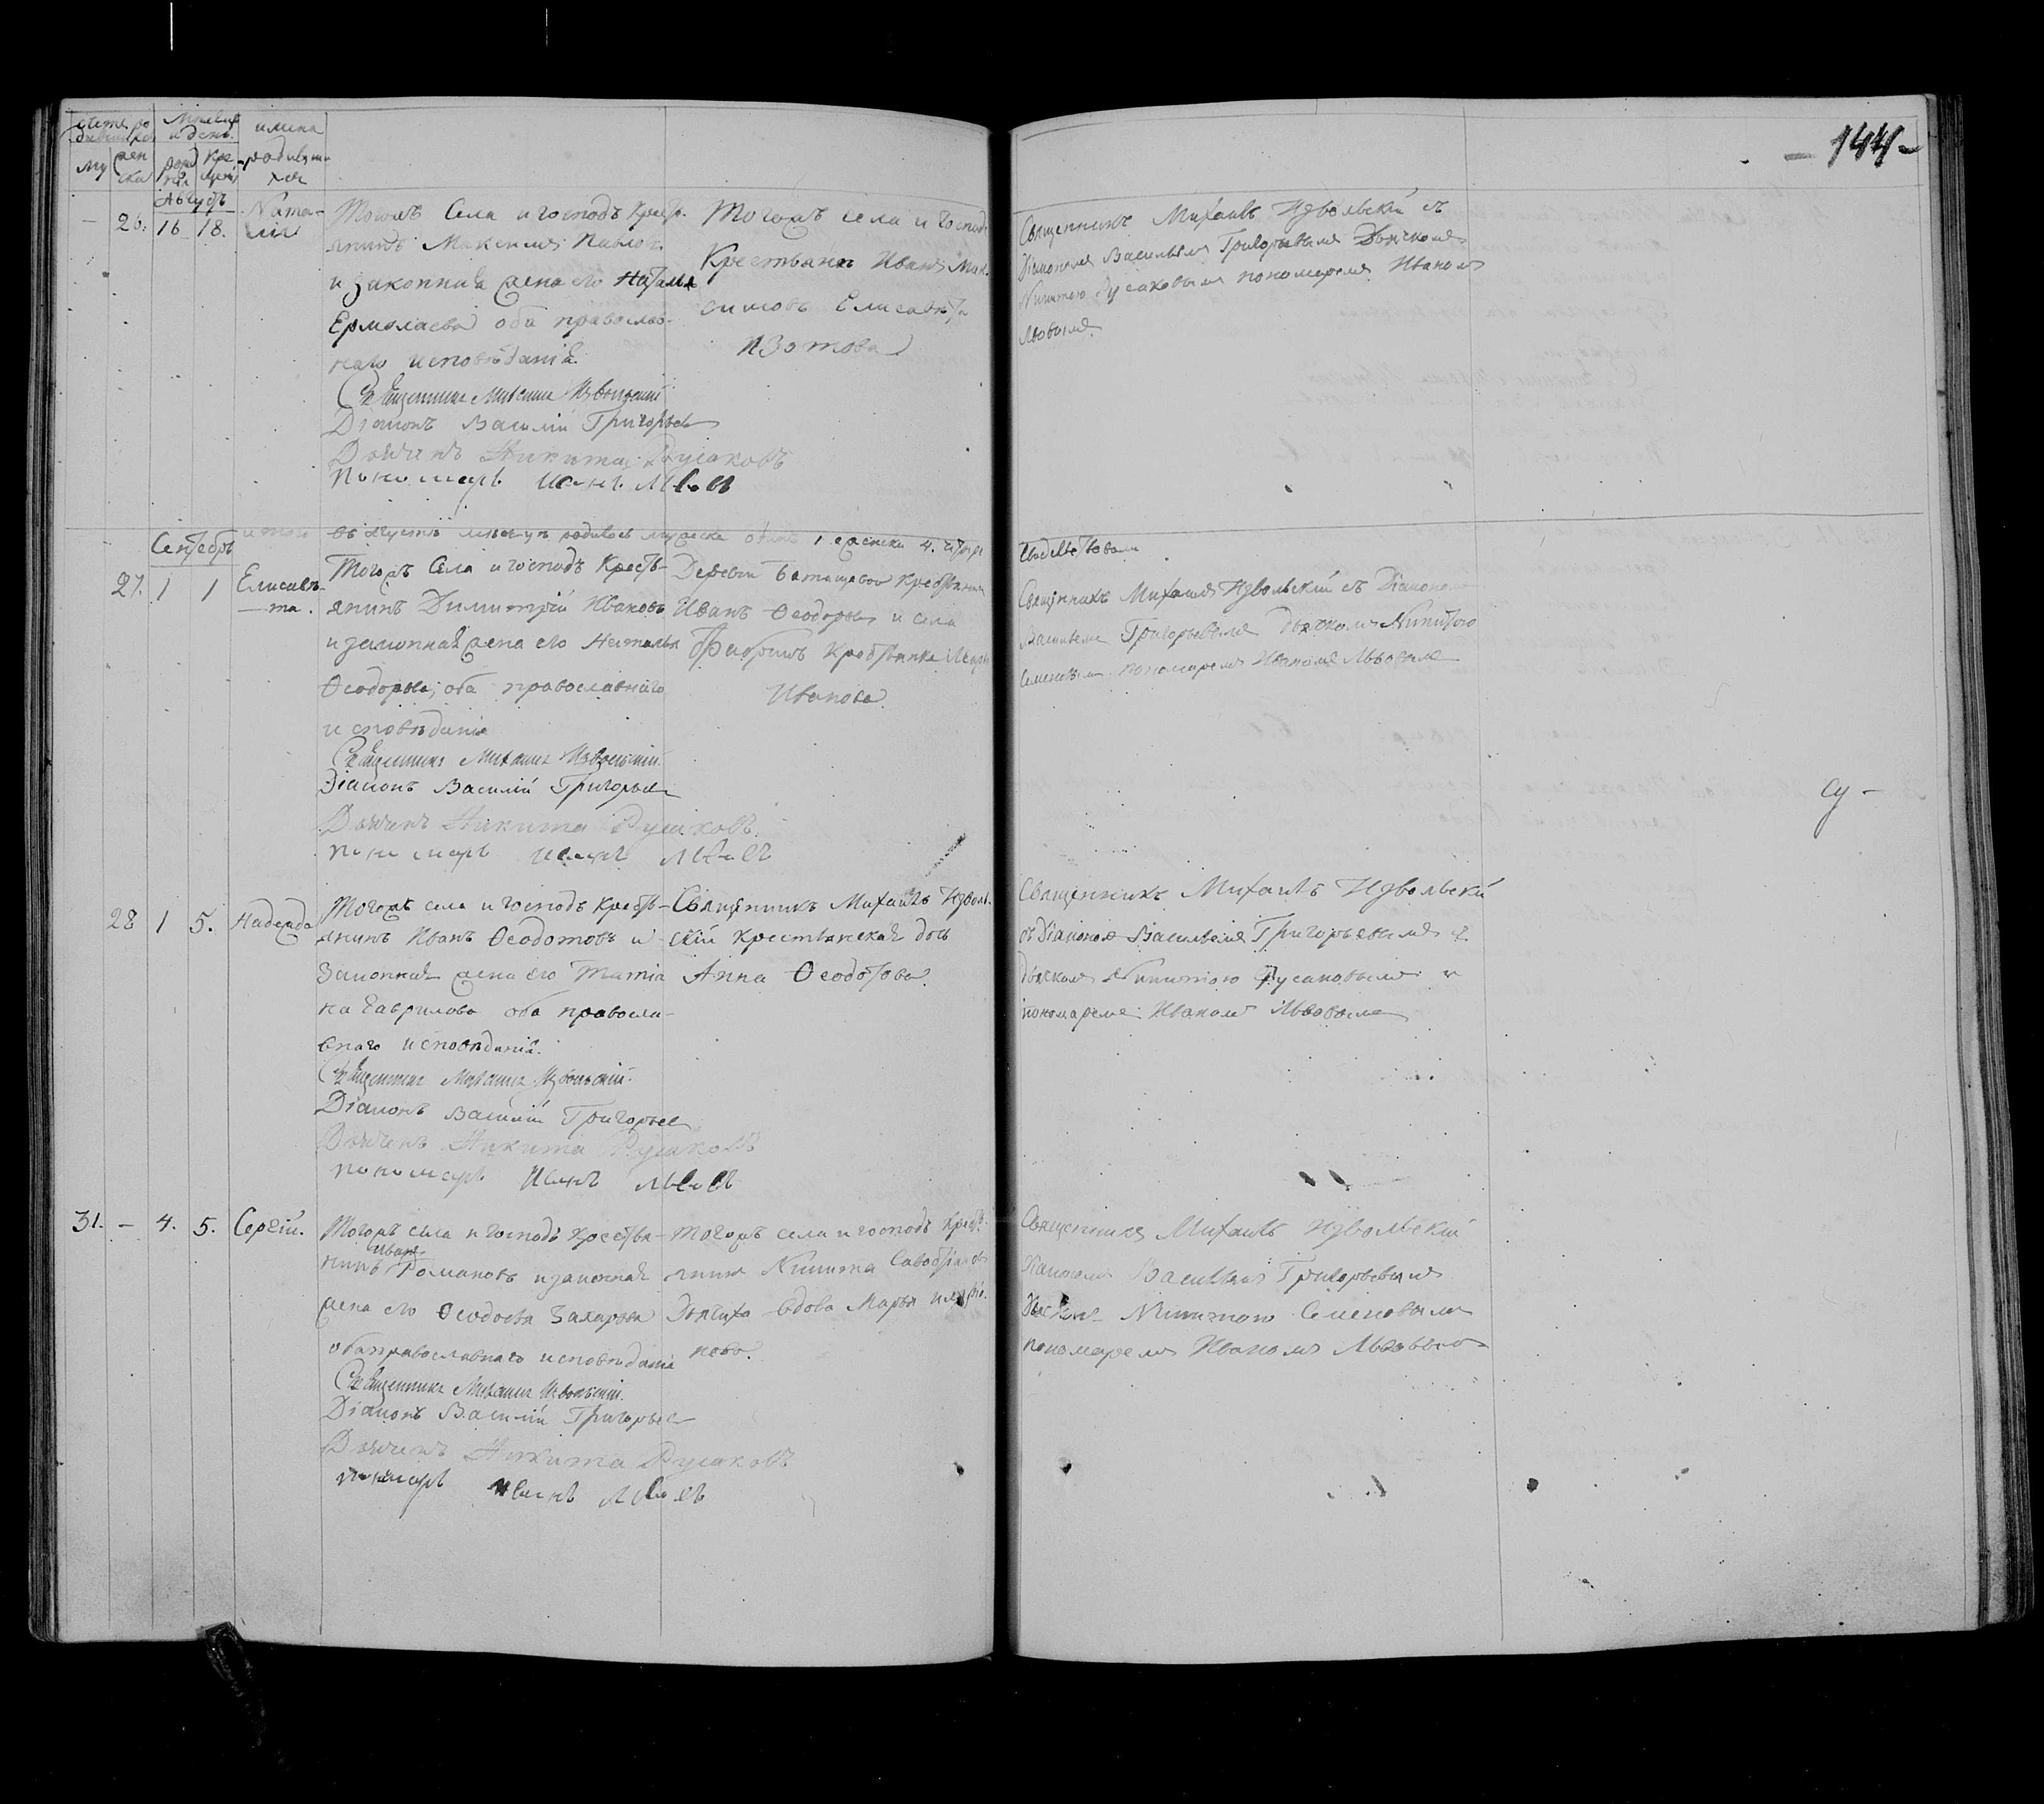 144
Счетъ ро
дившихся
Мѣсяцъ
и день.
имена
родивших
ся
му
жен
ска
рож
денія
кре
щенія
Августъ
26. 16 18. Ната-
лія
Тогожъ Села и господъ Кресть-
янинъ Максимъ Павловъ
и законная жена его Наталья
Ермолаева оба православ-
наго исповѣданія.
Священникъ Михаилъ Извольскій
Діаконъ Василій Григорьевъ
Дьячекъ Никита Русаковъ
Пономарь Иванъ Львовъ
Тогожъ села и господъ
Крестьянинъ Иванъ Мак-
симовъ Елисавета
Изотова
Священникъ Михаилъ Извольскій съ
Діакономъ Васильемъ Григорьевымъ Дьячкомъ
Никитою Русаковымъ пономаремъ Иваномъ
Львовымъ.
итого въ Августѣ мѣсяцѣ родилось мужеска одинъ 1 женска 4. четыре
Сентябрь
27. 1 1 Елисаве-
та.
Тогожъ Села и господъ Кресть-
янинъ Димитрій Ивановъ
и законная жена его Наталья
Ѳеодорова; оба православнаго
исповѣданія
Священникъ Михаилъ Извольскій.
Діаконъ Василій Григорьевъ
Дьячекъ Никита Русаковъ.
пономарь Иванъ Львовъ
Деревни Крестьянинъ
Иванъ Ѳеодоровъ и села
Крестьянка
Иванова.
Свидѣтельствовали
Священникъ Михаилъ Извольскій съ Діакономъ
Васильемъ Григорьевымъ дьячкомъ Никитою
Семеновымъ пономаремъ Иваномъ Львовымъ
28 1 5. Надежда
Тогожъ села и господъ Кресть-
янинъ Иванъ Ѳеодотовъ и
Законная жена его Татья
на Гаврилова оба правосла-
внаго исповѣданія.
Священникъ Михаилъ Извольскій.
Діаконъ Василій Григорьевъ
Дьячекъ Никита Русаковъ
пономарь Иванъ Львовъ
Священникъ Михаилъ Изволь-
скій крестьянская дочь
Анна Ѳеодотова.
Священникъ Михаилъ Извольскій
съ Діакономъ Васильемъ Григорьевымъ и
дьячкомъ Никитою Русаковымъ и
пономаремъ Иваномъ Львовымъ
31. - 4. 5. Сергій.
Тогожъ села и господъ Крестья-
Иванъ
нинъ Романовъ и законная
жена его Ѳеодосья Захарова
оба православнаго исповѣданія
Священникъ Михаилъ Извольскій.
Діаконъ Василій Григорьевъ
Дьячекъ Никита Русаковъ
пономарь Иванъ Львовъ
Тогожъ села и господъ Кресть-
янинъ Никита Савостьяновъ
вдова Марья
нова.
Священникъ Михаилъ Извольскій
Діакономъ Васильемъ Григорьевымъ
Дьячкомъ Никитою Семеновымъ
пономаремъ Иваномъ Львовымъ